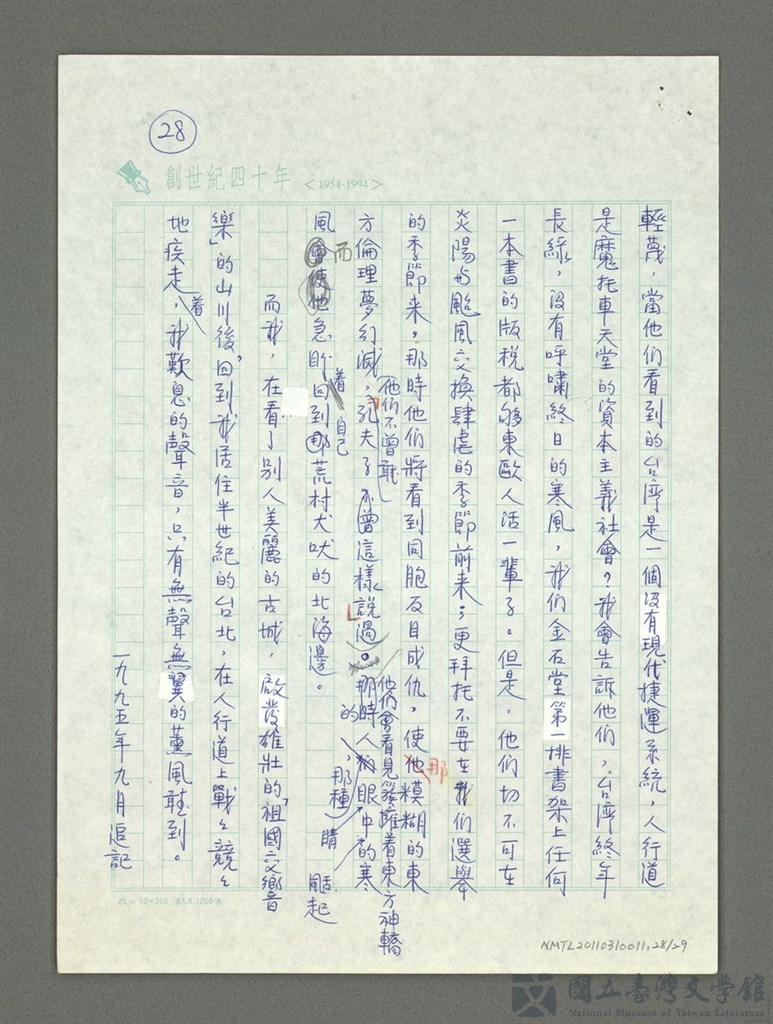 28
創世紀四十年 <1954-1994>
輕蔑，當他們看到的台灣是一個沒有現代捷運系統，人行道
是魔托車天堂的資本主義社會？我會告訴他們，台灣終年
長綠，沒有呼嘯終日的寒風，我們金石堂第一排書架上任何
一本書的版稅都够東歐人活一輩子。但是，他們切不可在
炎陽與颱風交換肆虐的季節前來；更拜托不要在我們選舉
的季節來，那時他們將看到同胞反目成仇，使他糢糊的東
那
他們不曾聽
他們會看見簇擁着東方神轎
方倫理夢幻滅，孔夫子不曾這樣說過。那時人的眼中的寒
的
，那種
睛
颳起
風會使他急盼回到那荒村犬吠的北海邊。
而
着
自己
而我，在看了別人美麗的古城，啟發雄壯的「祖國交響
樂」的山川後，回到我居住半世紀的台北，在人行道上戰戰競競
地疾走，我歎息的聲音，只有無聲無翼的薰風聽到。
着
一九九五年九月追記
25×10=300 83.9.1200本
NMTL20110310011, 28/29
國立臺灣文學館
National Museum of Taiwan Literature